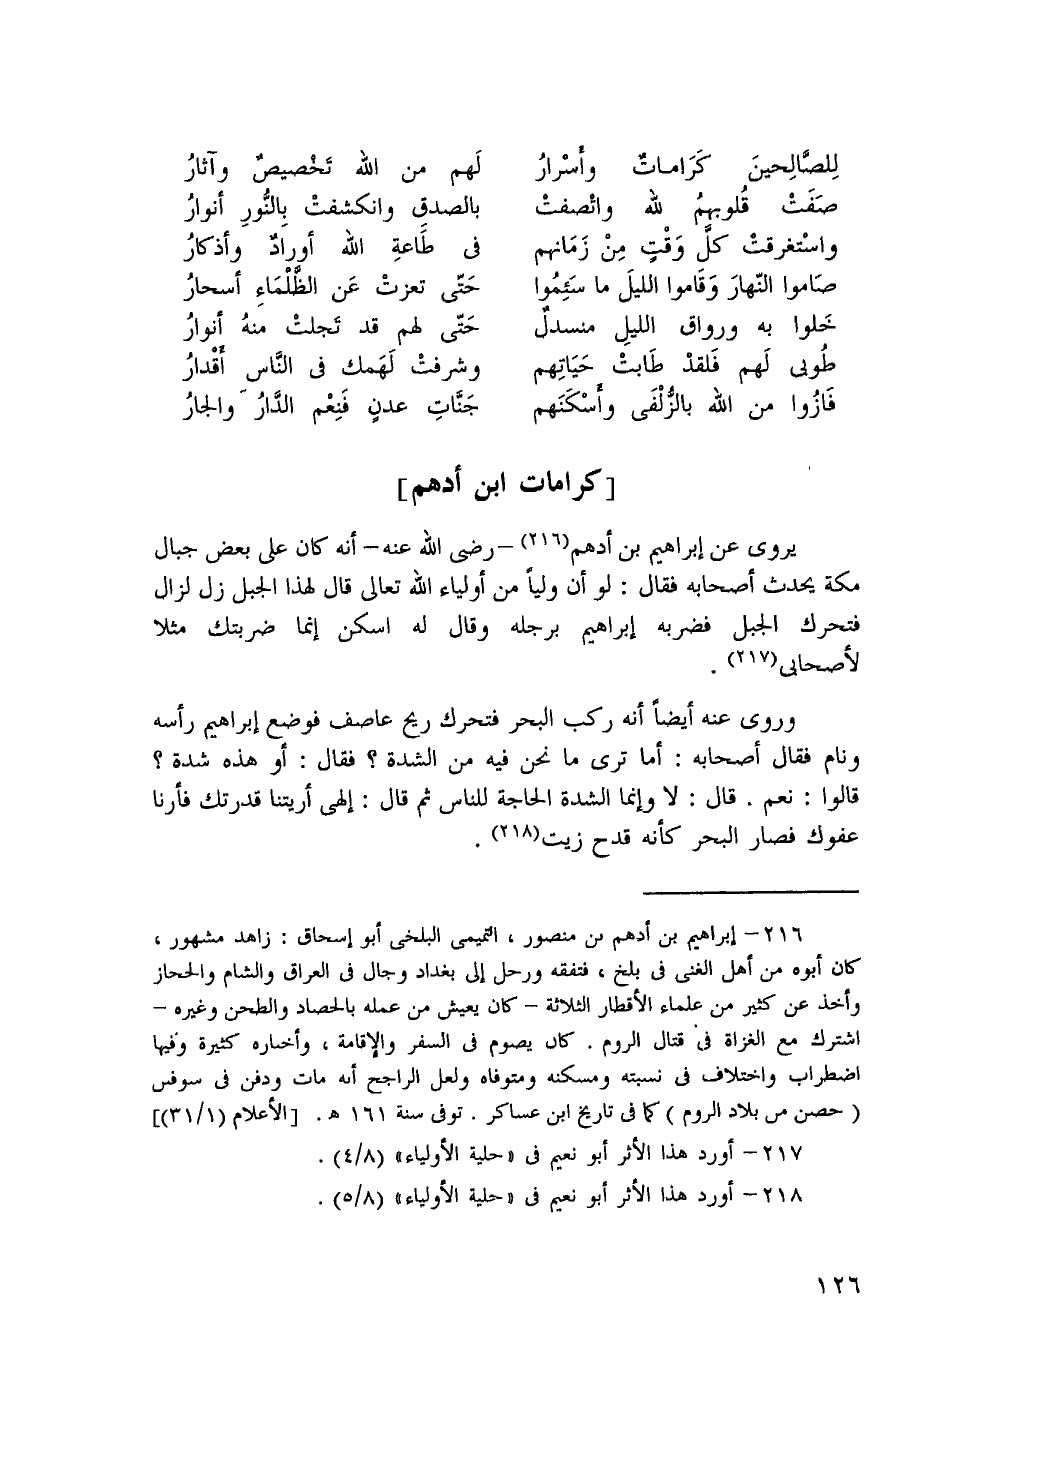 لِلصَّالِحينَ كَرَاماتٌ وأَسْرارُ لَهم من الله تَخْصيصٌ وآثارُ
صَفَتْ قُلوبهمُ لله واتْصفتْ بالصدقِ وانكشفتْ بِالنُّورِ أنوارُ
واسْتغرقتْ كلَّ وَقْتٍ مِنْ زَمَانهم فى طَاعةِ الله أورادٌ وأذكارُ
صَاموا النّهارَ وَقَاموا الليلَ ما سَئِمُوا حَتّى تعزتْ عَن الظَّلْمَاءِ أسحارُ
خَلوا به ورواق الليلِ منسدلٌ حَتّى لهم قد تَجلتْ منهُ أنوارُ
طُوبى لَهم فَلقدْ طَابتْ حَيَاتِهم وشرفتْ لَهَمك فى النَّاس أَقْدارُ
فَازُوا من الله بالزُّلْفَى وأَسْكَنَهم جَنَّاتِ عدنٍ فَنِعْم الدَّارُ والجارُ
[كرامات ابن أدهم]
يروى عن إبراهيم بن أدهم(٢١٦) –رضى الله عنه– أنه كان على بعض جبال
مكة يحدث أصحابه فقال : لو أن ولياً من أولياء الله تعالى قال لهذا الجبل زل لزال
فتحرك الجبل فضربه إبراهيم برجله وقال له اسكن إنما ضربتك مثلا
لأصحابى(٢١٧) .
وروى عنه أيضاً أنه ركب البحر فتحرك ريح عاصف فوضع إبراهيم رأسه
ونام فقال أصحابه : أما ترى ما نحن فيه من الشدة ؟ فقال : أو هذه شدة ؟
قالوا : نعم . قال : لا وإنما الشدة الحاجة للناس ثم قال : إلهى أريتنا قدرتك فأرنا
عفوك فصار البحر كأنه قدح زيت(٢١٨) .
٢١٦– إبراهيم بن أدهم بن منصور ، التميمى البلخى أبو إسحاق : زاهد مشهور ،
كان أبوه من أهل الغنى فى بلخ ، فتفقه ورحل إلى بغداد وجال فى العراق والشام والحجاز
وأخذ عن كثير من علماء الأقطار الثلاثة – كان يعيش من عمله بالحصاد والطحن وغيره –
اشترك مع الغزاة فى قتال الروم . كان يصوم فى السفر والإقامة ، وأخباره كثيرة وفيها
اضطراب واختلاف فى نسبته ومسكنه ومتوفاه ولعل الراجح أنه مات ودفن فى سوفس
( حصن من بلاد الروم ) كما فى تاريخ ابن عساكر . توفى سنة ١٦١ هـ . [الأعلام (٣١/١)]
٢١٧– أورد هذا الأثر أبو نعيم فى «حلية الأولياء» (٤/٨) .
٢١٨– أورد هذا الأثر أبو نعيم فى «حلية الأولياء» (٥/٨) .
١٢٦